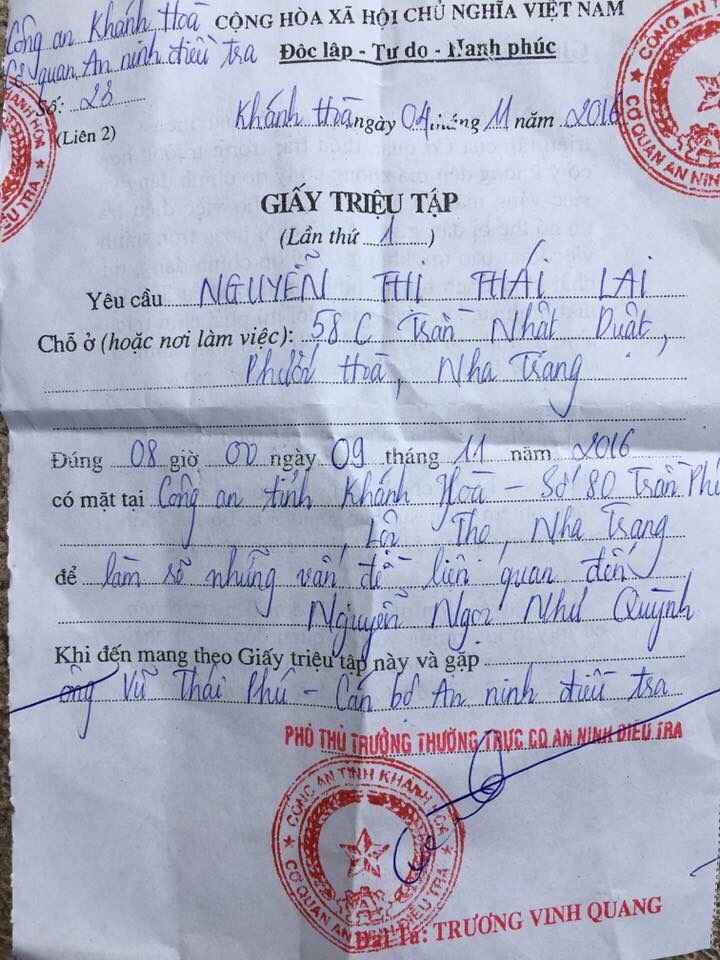 Công an Khánh Hoà
Cơ quan An ninh điều tra
CỘNG HÒA XÃ HỘI CHỦ NGHĨA VIỆT NAM
Độc lập - Tự do - Hạnh phúc
Số: 28
(Liên 2)
Khánh Hoà ngày 04 tháng 11 năm 2016
GIẤY TRIỆU TẬP
(Lần thứ 1)
Yêu cầu NGUYỄN THỊ THÁI LAI
Chỗ ở (hoặc nơi làm việc): 58 C Trần Nhật Duật,
Phước Hoà, Nha Trang
Đúng 08 giờ 00 ngày 09 tháng 11 năm 2016
có mặt tại Công an tỉnh Khánh Hoà - Số 80 Trần Phú
, Lộc Thọ, Nha Trang
để làm rõ những vấn đề liên quan đến
Nguyễn Ngọc Như Quỳnh
Khi đến mang theo Giấy triệu tập này và gặp
ông Vũ Thái Phú - Cán bộ An ninh điều tra
PHÓ THỦ TRƯỞNG THƯỜNG TRỰC CQ AN NINH ĐIỀU TRA
CÔNG AN TỈNH KHÁNH HÒA
CƠ QUAN AN NINH ĐIỀU TRA
Đại tá: TRƯƠNG VINH QUANG